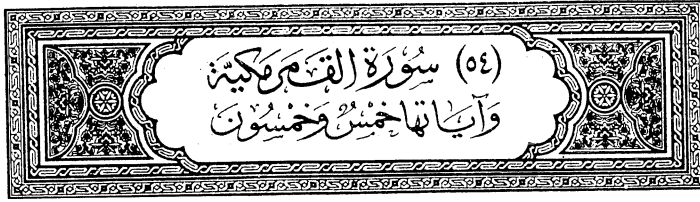 (٥٤) سُورَة القَمَر مَكيَّة
وَآيَاتهَا خمْسٌ وَخمْسُونَ